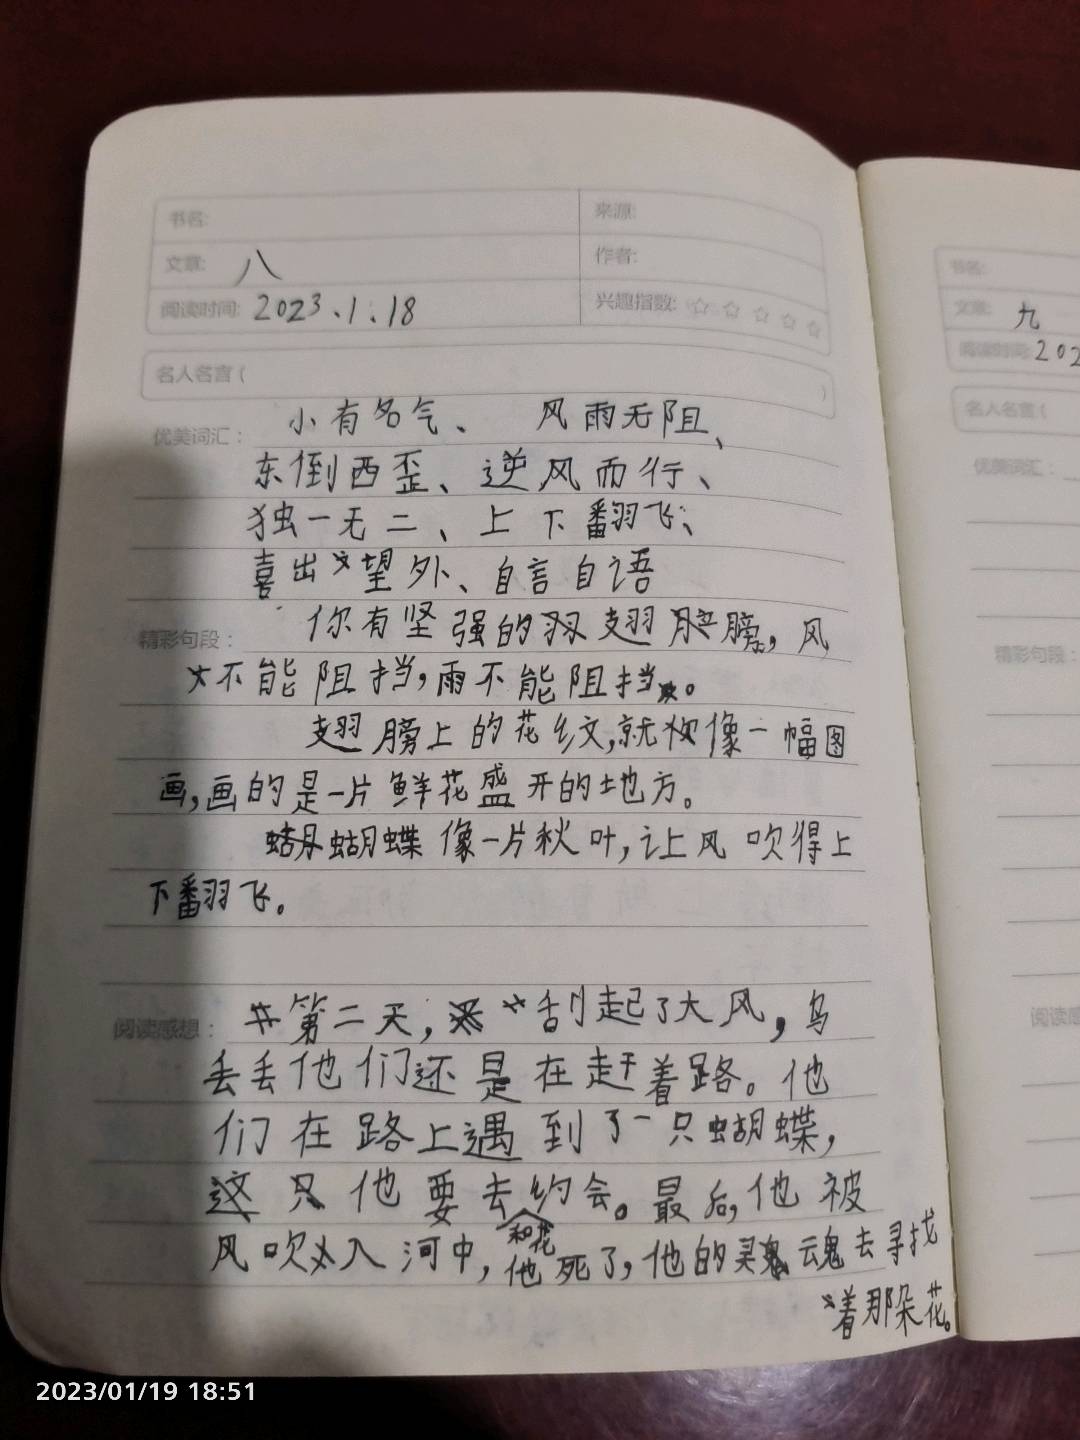 书名:
来源:
文章: 八
作者:
阅读时间: 2023.1.18
兴趣指数: ☆ ☆ ☆ ☆ ☆
名人名言 ( )
优美词汇: 小有名气、 风雨无阻、
东倒西歪、逆风而行、
独一无二、上下翻飞、
喜出望外、自言自语
精彩句段: 你有坚强的羽翅膀,风
不能阻挡,雨不能阻挡。
翅膀上的花纹,就像一幅图
画,画的是一片鲜花盛开的土地方。
蝴蝶像一片秋叶,让风吹得上
下翻飞。
阅读感想: 第二天,刮起了大风,乌
丢丢他们还是在赶着路。他
们在路上遇到了一只蝴蝶,
这只他要去约会。最后,他被
风吹入河中,他和花死了,他的灵魂去寻找
着那朵花。
书名:
文章: 九
阅读时间: 202
名人名言 (
优美词汇:
精彩句段:
阅读感
2023/01/19 18:51